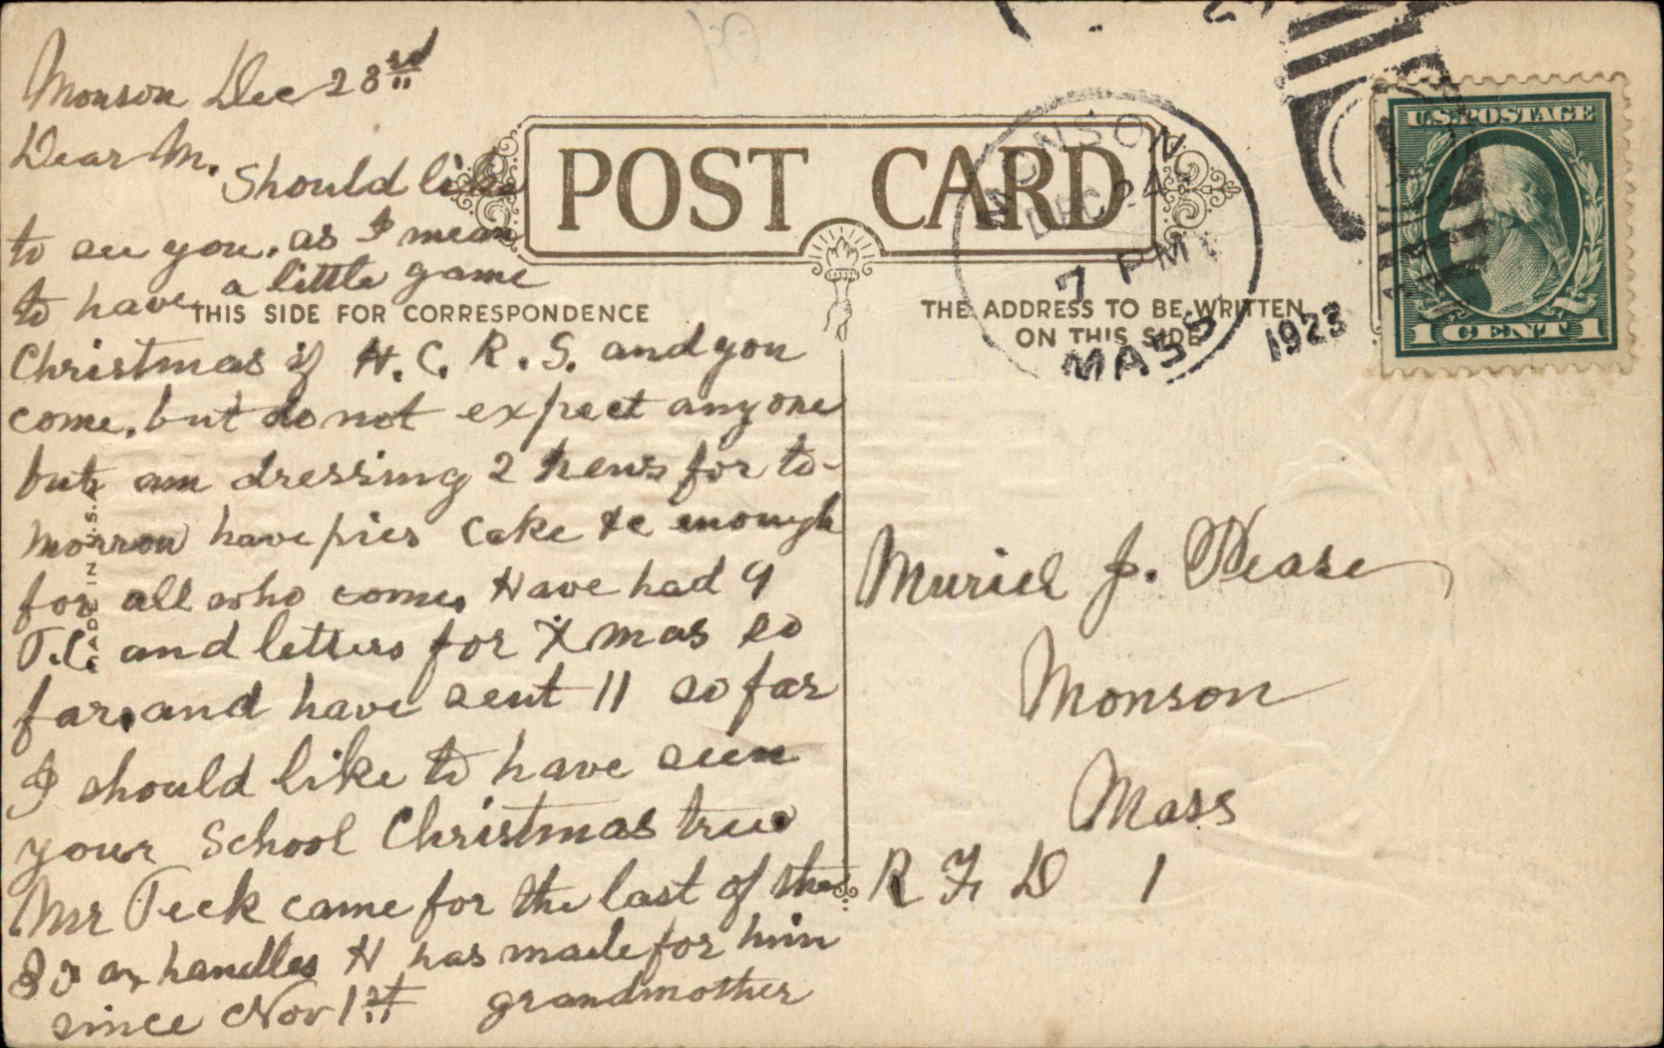 Monson Dec 23rd
Dear M.
Should like
to see you, as I mean
to have a little game
Christmas if H. C. R. S. and you
come, but do not expect anyone
but am dressing 2 hens for to-
morrow have pies cake &c enough
for all who come, Have had 9
P.C. and letters for Xmas so
far, and have sent 11 so far
I should like to have seen
your School Christmas tree
Mr Peck came for the last of the
ax handles H has made for him
since Nov 1st grandmother
POST CARD
THIS SIDE FOR CORRESPONDENCE
THE ADDRESS TO BE WRITTEN
ON THIS SIDE
MONSON
DEC 24
7 PM
1923
MASS
U.S. POSTAGE
1 CENT 1
Muriel J. Pease
Monson
Mass
R F D 1
MADE IN U.S.